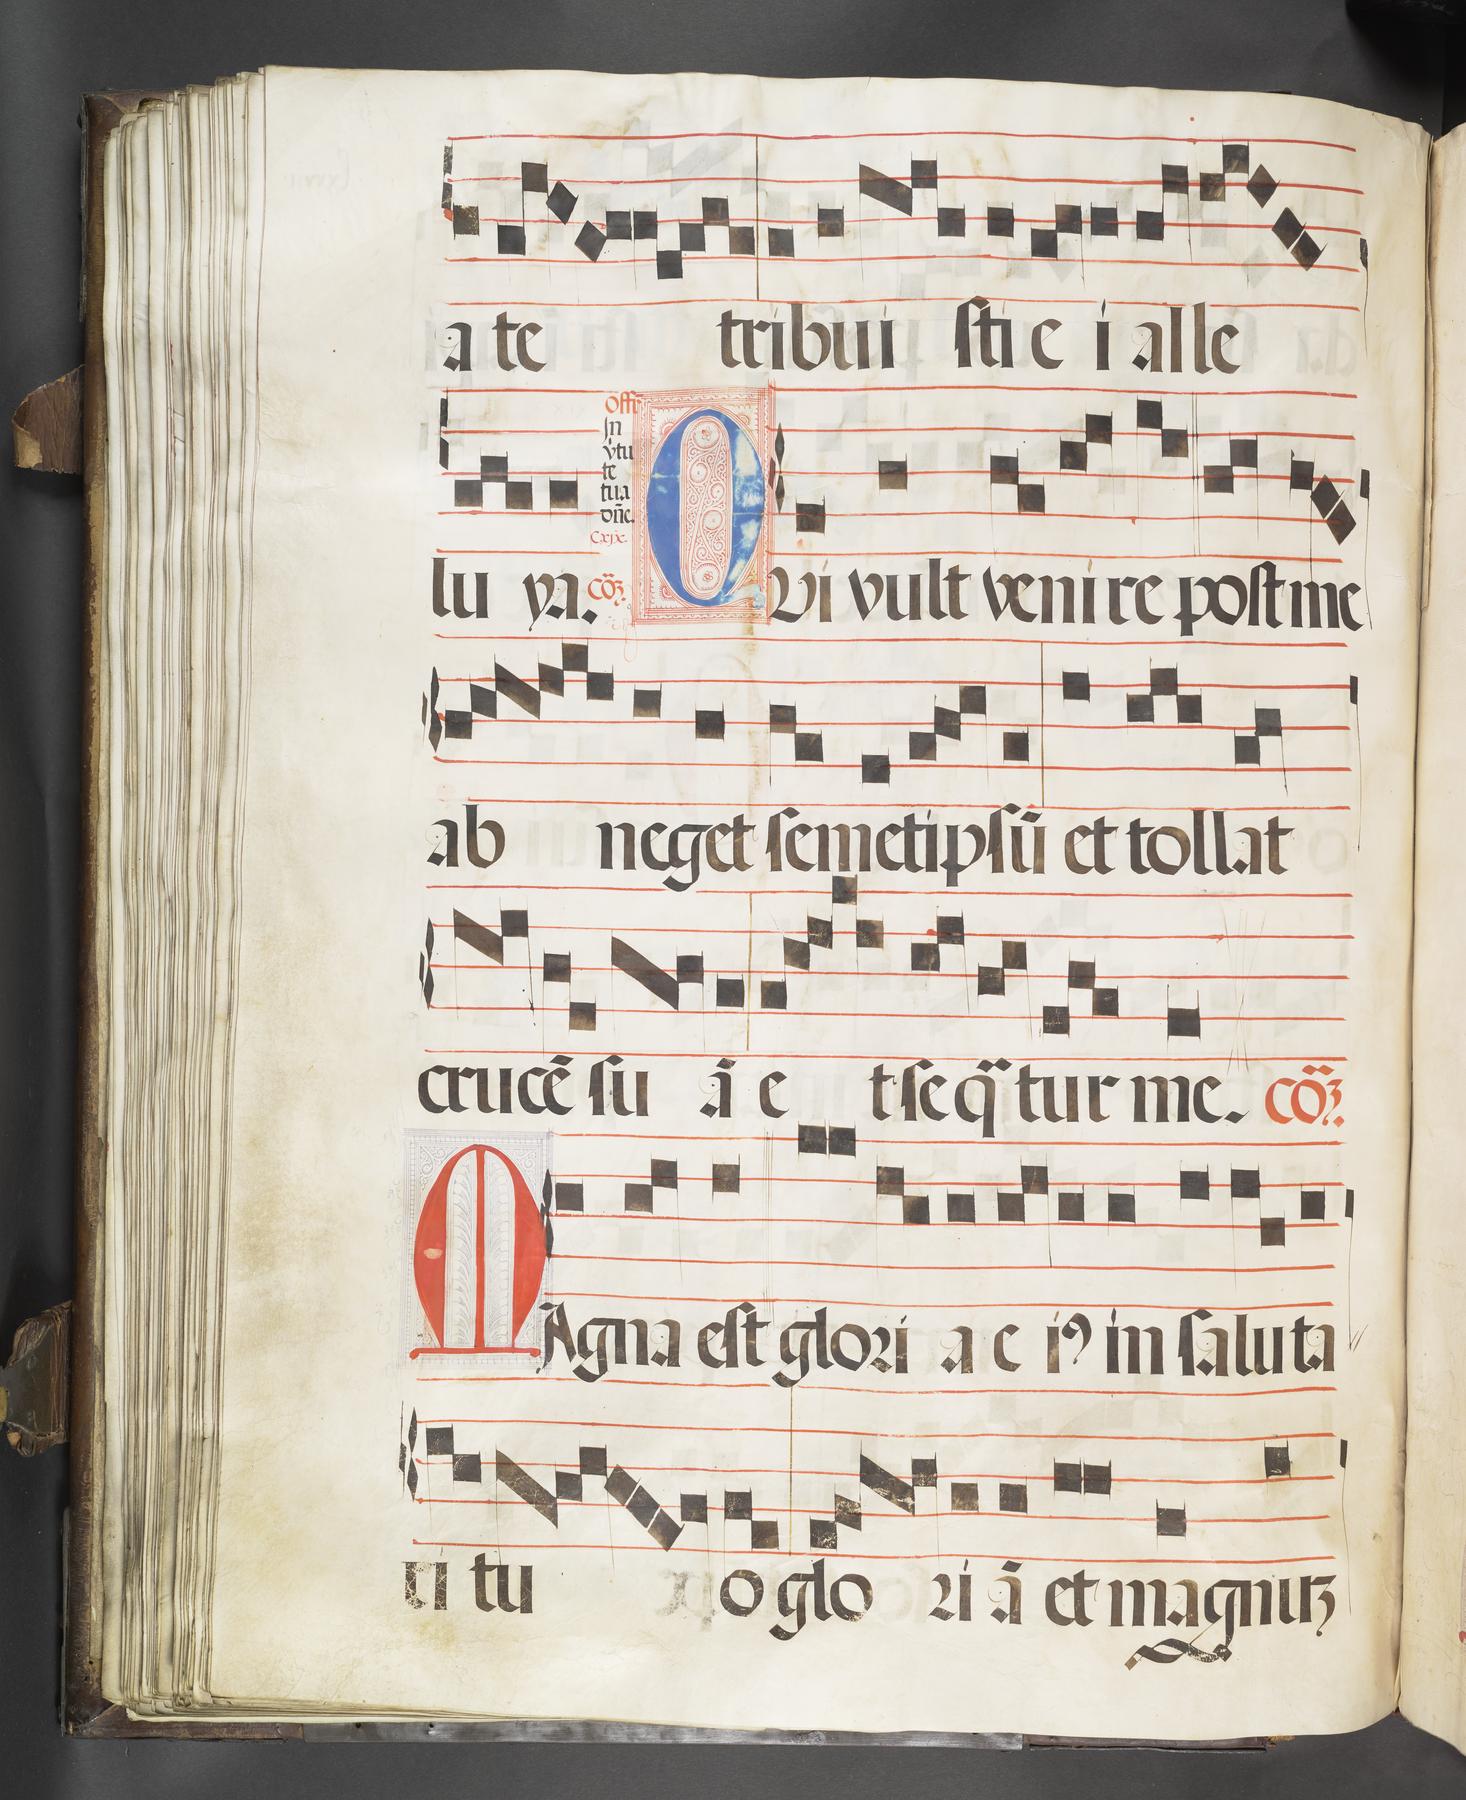 a te tribui sti e i alle
Offr̃
In
v̓tu
te
tua
dñe.
Cxjx.
lu ya. cõ₹. QVi vult venire post me
ab neget semetipsũ et tollat
crucẽ su ã e t seq̃tur me. cõ₹.
MAgna est glori a e i⁹ in saluta
ri tu o glo ri ã et magnuꝫ